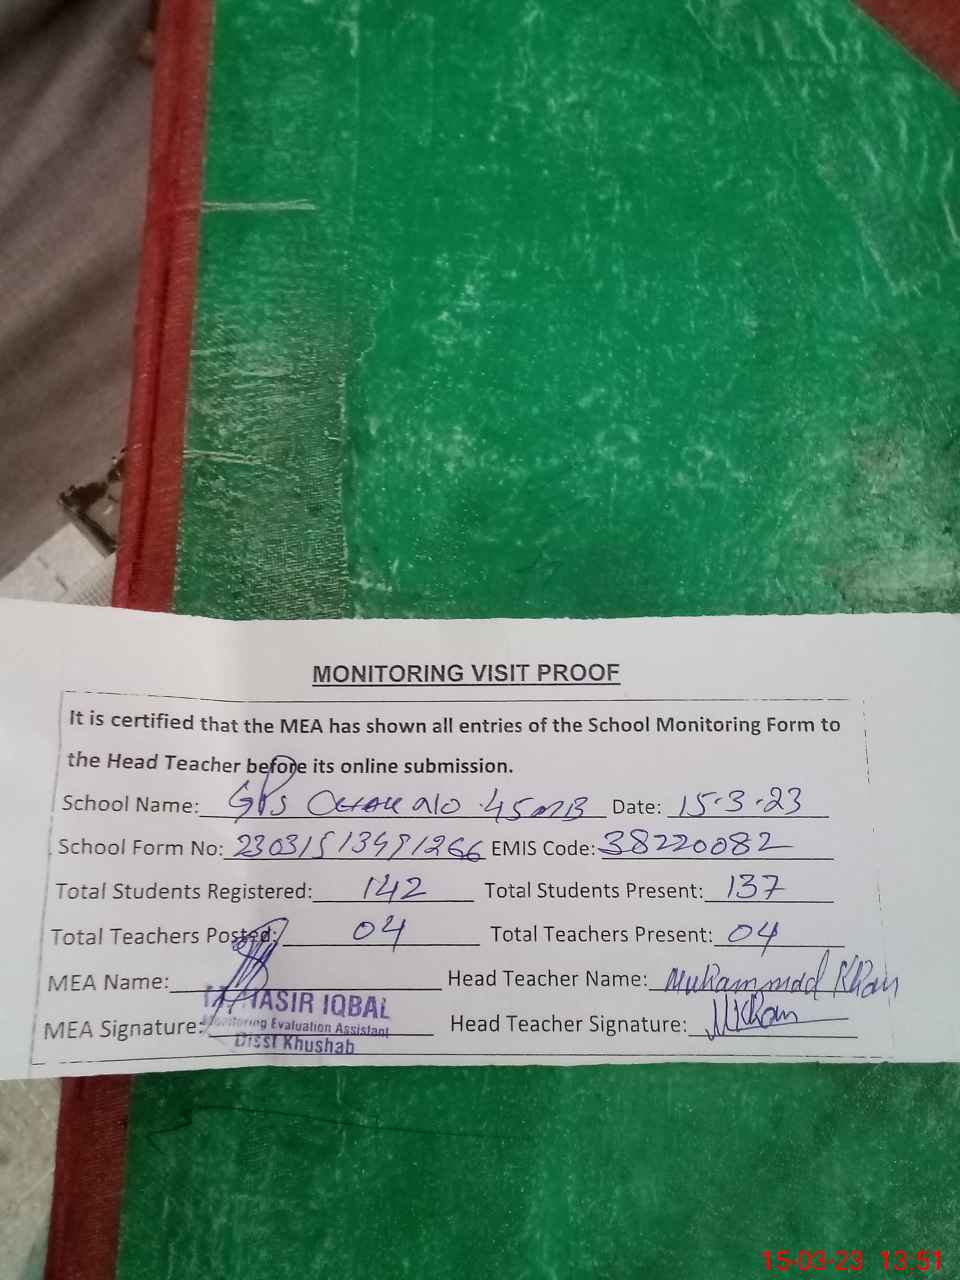 MONITORING VISIT PROOF
It is certified that the MEA has shown all entries of the School Monitoring Form to
the Head Teacher before its online submission.
School Name: GPS Chak No 45 MB Date: 15-3-23
School Form No: EMIS Code: 38220082
Total Students Registered: 142 Total Students Present: 137
Total Teachers Posted: 04 Total Teachers Present: 04
MEA Name: Head Teacher Name: Muhammad Khan
IQBAL
MEA Signature: Head Teacher Signature: MKhan
Monitoring Evaluation Assistant
Disst Khushab
15-03-23 13:51